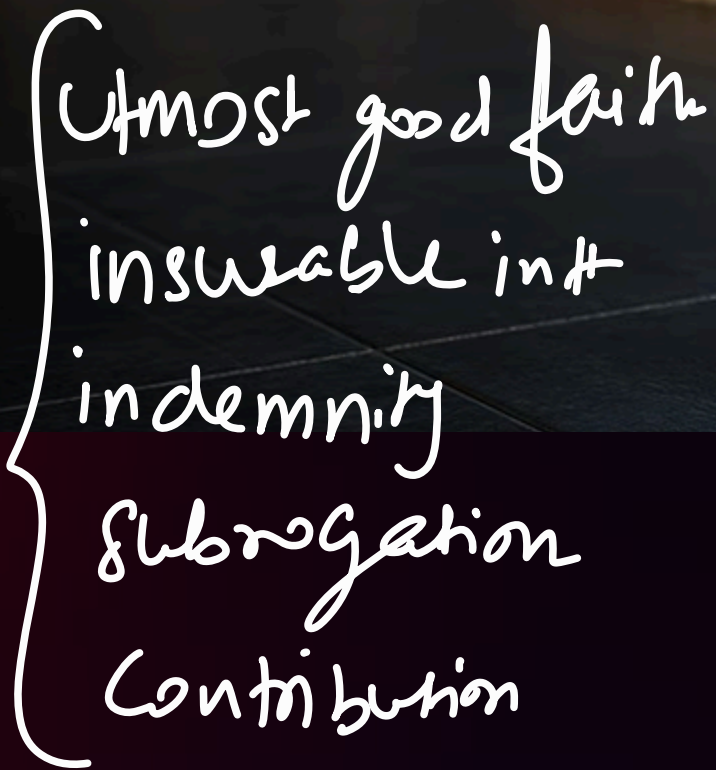 Utmost good faith
insurable intt
indemnity
Subrogation
Contribution